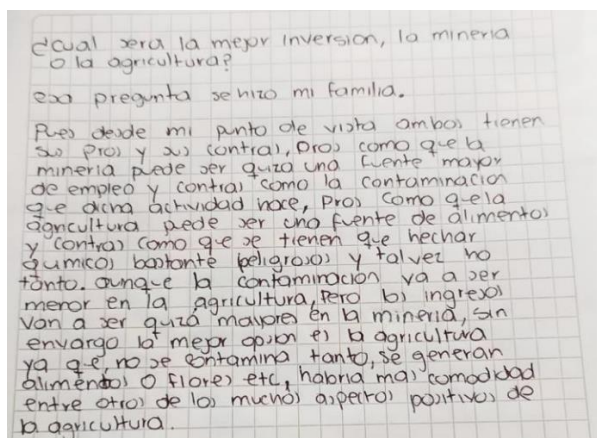 ¿Cual sera la mejor inversion, la mineria
o la agricultura?
esa pregunta se hizo mi familia.
Pues desde mi punto de vista ambos tienen
sus pros y sus contras, pros como que la
mineria puede ser quiza una fuente mayor
de empleo y contras como la contaminacion
que dicha actividad hace, pros como que la
agricultura puede ser una fuente de alimentos
y contras como que se tienen que hechar
quimicos bastante peligrosos y tal vez no
tanto. aunque la contaminacion va a ser
menor en la agricultura, Pero los ingresos
van a ser quizá mayores en la mineria, sin
envargo la mejor opsion es la agricultura
ya que, no se contamina tanto, se generan
alimentos o flores etc, habria mas comodidad
entre otros de los muchos aspectos positivos de
la agricultura.